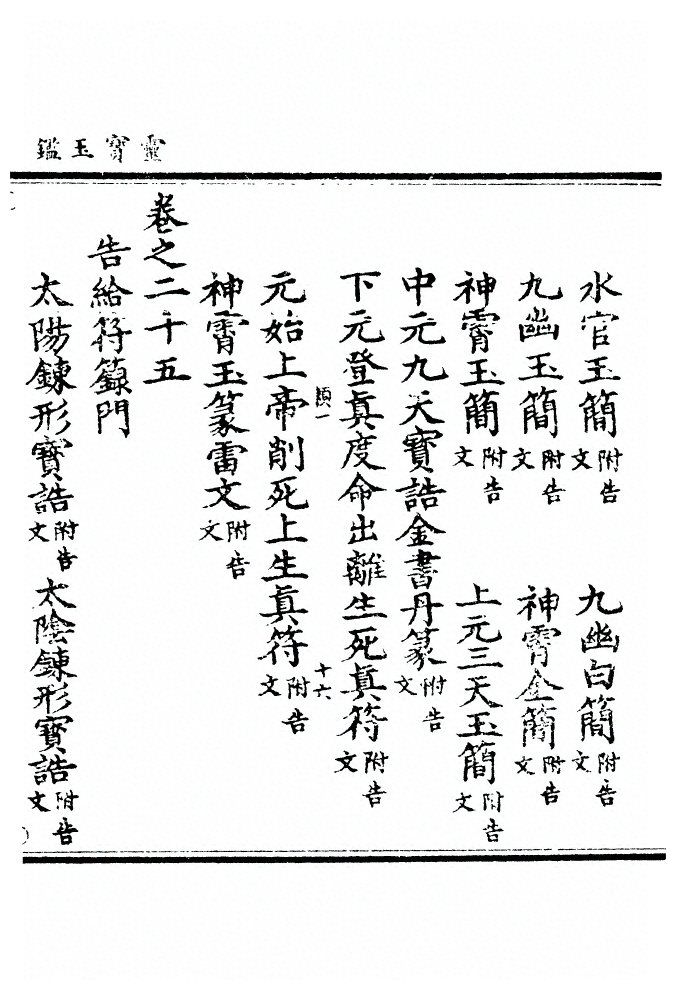 靈寶玉鑑
水官玉簡附告文 九幽白簡附告文
九幽玉簡附告文 神霄金簡附告文
神霄玉簡附告文 上元三天玉簡附告文
中元九天寶誥金書丹篆附告文
下元登真度命出離生死真符附告文
顛一 十六
元始上帝削死上生真符附告文
神霄玉篆雷文附告文
卷之二十五
告給符籙門
太陽鍊形寶誥附告文 太陰鍊形寶誥附告文